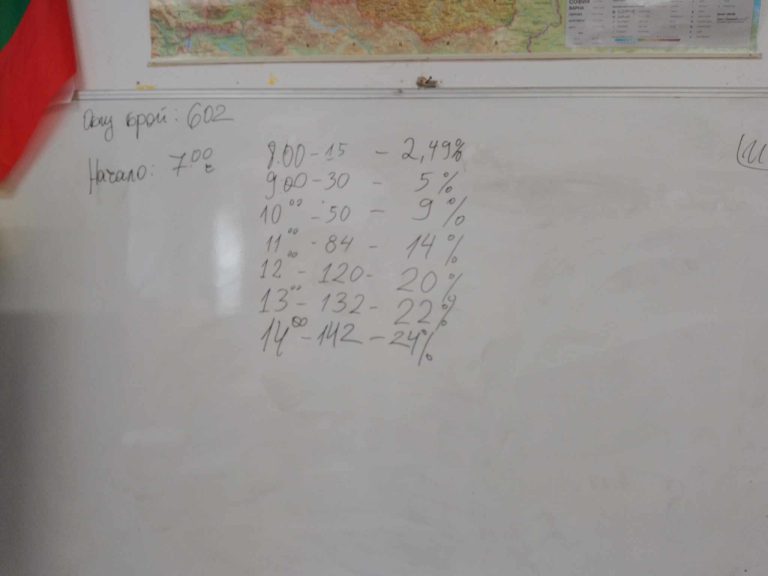 СОФИЯ
ВАРНА
Общ брой: 602
Начало: 7.00 ч
8.00 - 15 - 2,49%
9.00 - 30 - 5%
10 00 - 50 - 9%
11 00 - 84 - 14%
12 00 - 120 - 20%
13 00 - 132 - 22%
14 00 - 142 - 24%